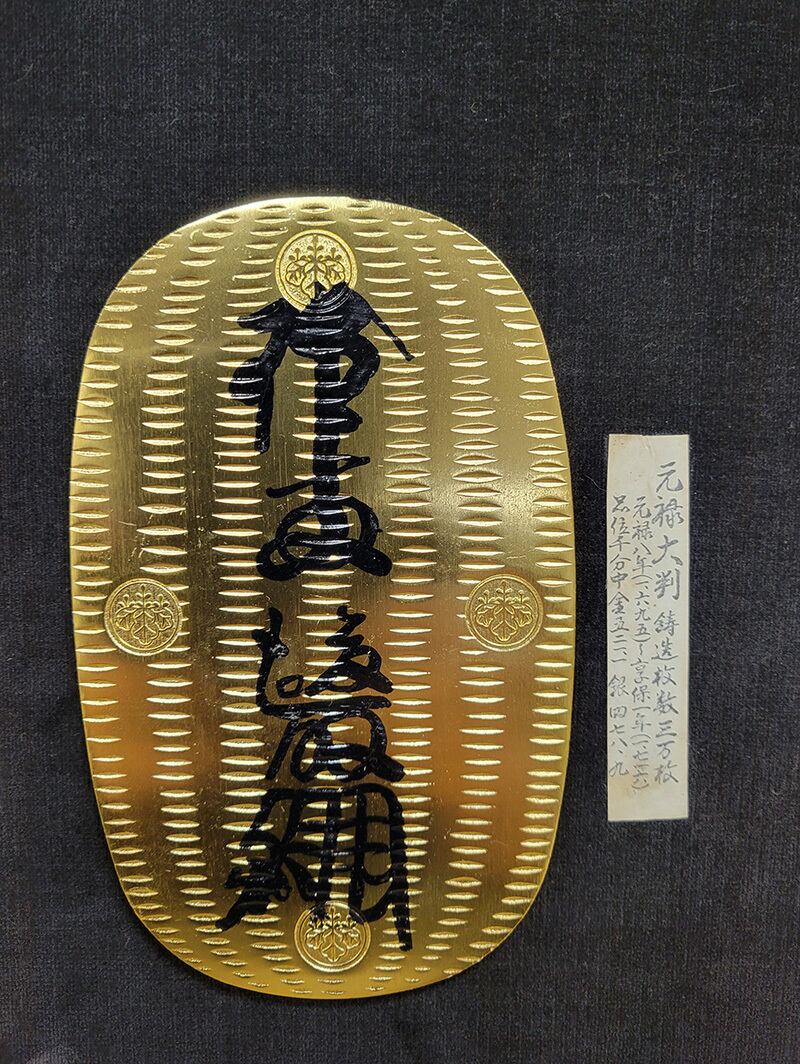 元禄大判 鋳造枚数三万枚
元禄八年(一六九五)〜享保一年(一七一六)
品位千分中 金五二一.一 銀四七八.九
拾両後藤